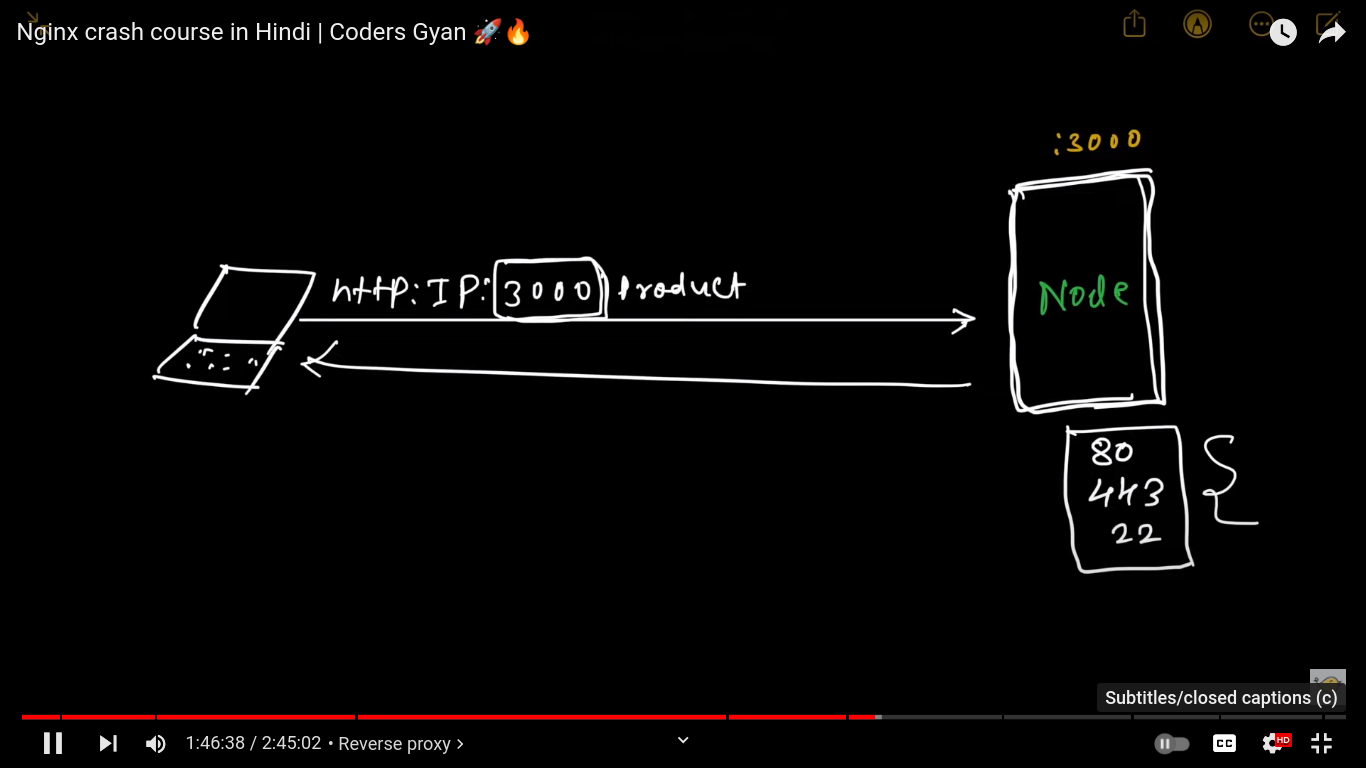 Nginx crash course in Hindi | Coders Gyan 🚀🔥
:3000
http:IP:3000 Product
Node
80
443
22
Subtitles/closed captions (c)
1:46:38 / 2:45:02 • Reverse proxy >
CC
HD